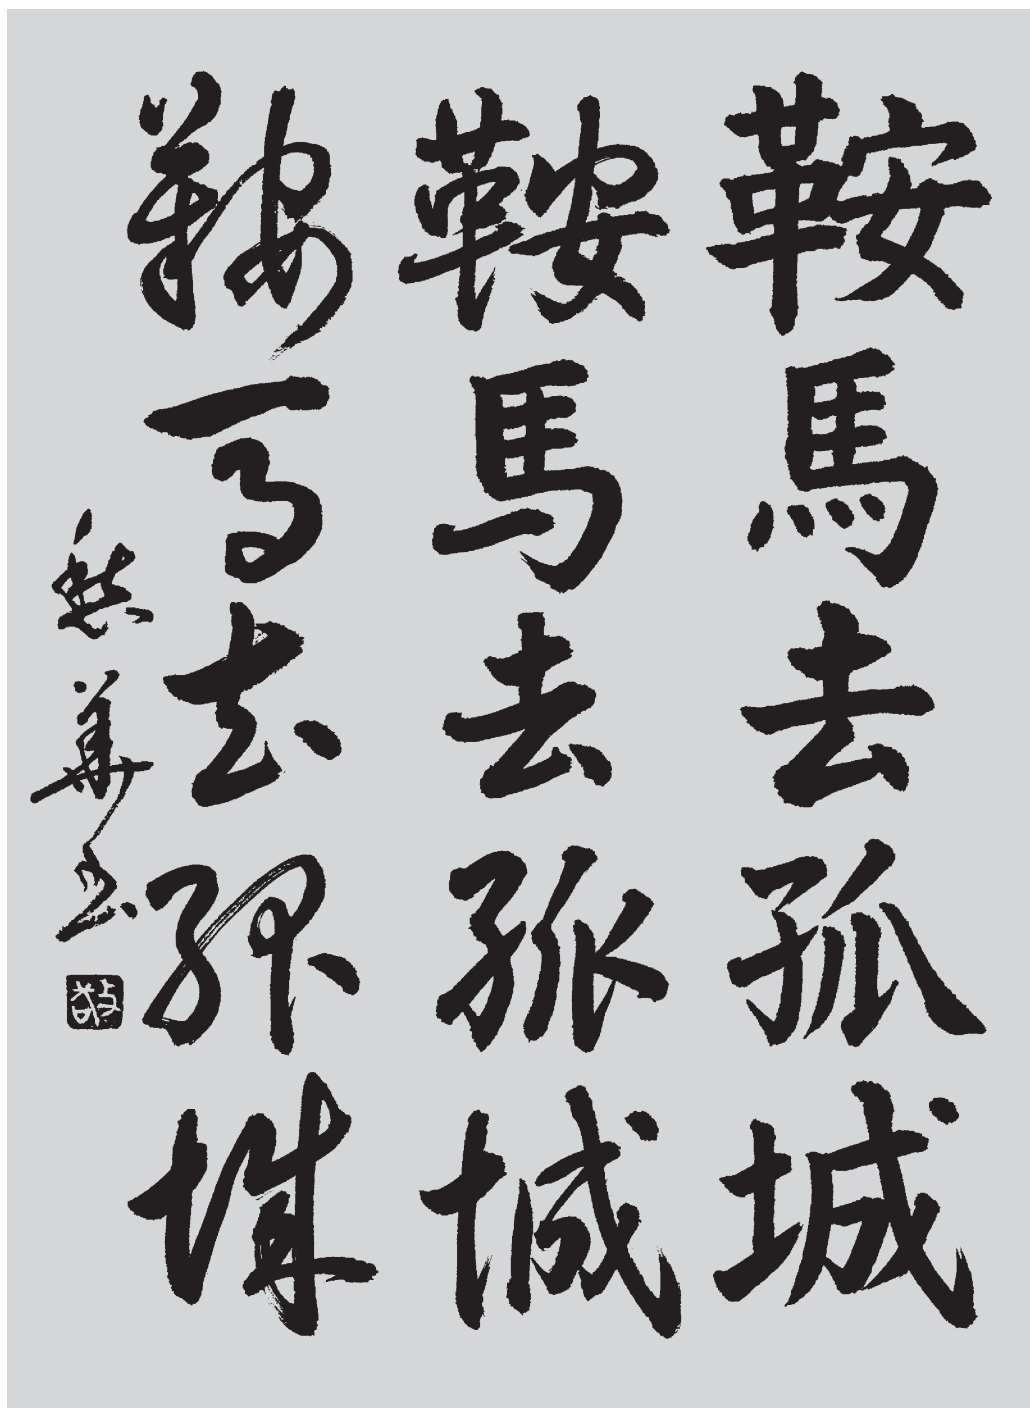 鞍馬去孤城
鞍馬去孤城
鞍馬去孤城